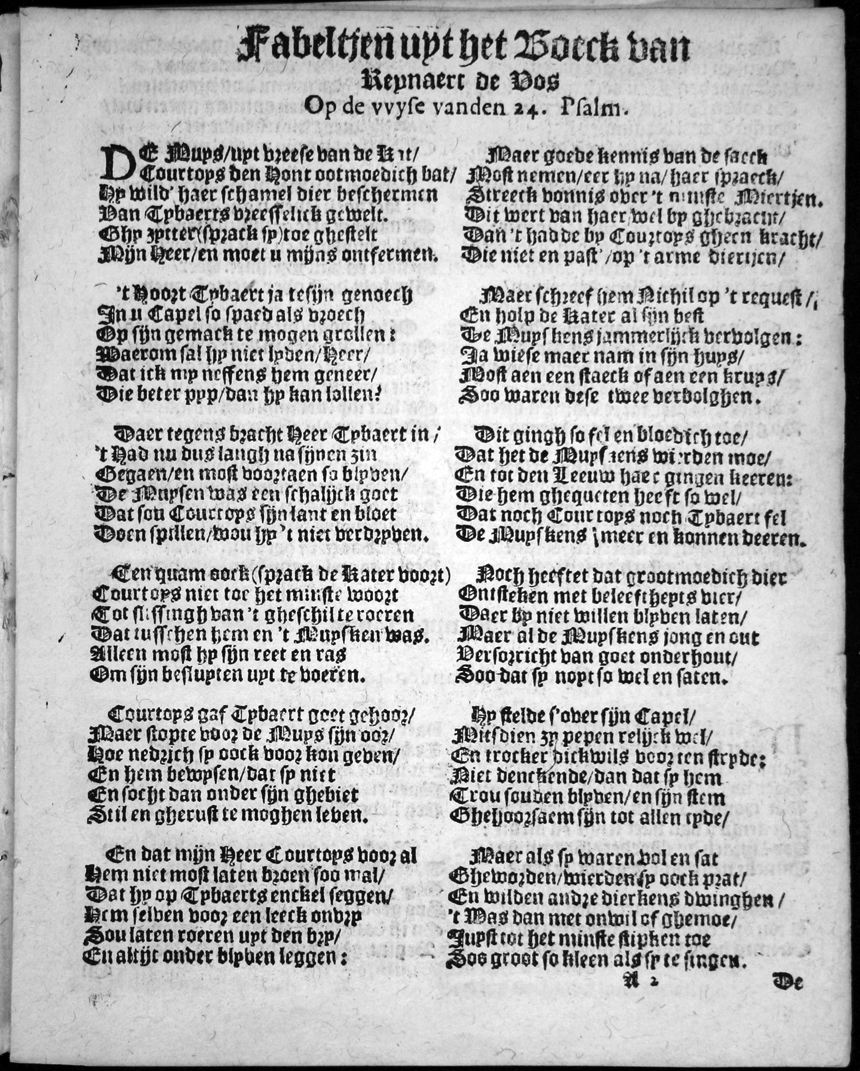 Fabeltjen uyt het Boeck van
Reynaert de Vos
Op de vvyse vanden 24. Psalm.
DE Muys/uyt vreese van de Kat/
Courtoys den Hont ootmoedich bat/
Hy wild' haer schamel dier beschermen
Van Tybaerts vreesselick gewelt.
Ghy zytter (sprack sy) toe ghestelt
Mijn Heer/en moet u mijns ontfermen.
't Hoort Tybaert ja te sijn genoech
In u Capel so spaed als vroech
Op sijn gemack te mogen grollen:
Waerom sal hy niet lyden/Heer/
Dat ick my neffens hem geneer/
Die beter pyp/dan hy kan lollen?
Daer tegens bracht Heer Tybaert in/
't Had nu dus langh na sijnen zin
Gegaen/en most voortaen so blyven/
De Muysen was een schalijck goet
Dat sou Courtoys sijn lant en bloet
Doen spillen/wou hy 't niet verdryven.
Een quam oock (sprack de Kater voort)
Courtoys niet toe het minste woort
Tot slissingh van 't gheschil te roeren
Dat tusschen hem en 't Muysken was.
Alleen most hy sijn reet en ras
Om sijn besluyten uyt te voeren.
Courtoys gaf Tybaert goet gehoor/
Maer stopte voor de Muys sijn oor/
Hoe nedrich sy oock voor kon geven/
En hem bewysen/dat sy niet
En socht dan onder sijn ghebiet
Stil en gherust te moghen leven.
En dat mijn Heer Courtoys voor al
Hem niet most laten vroen soo mal/
Dat hy op Tybaerts enckel seggen/
Hem selven voor een leeck onvry
Sou laten roeren uyt den bry/
En altijt onder blyven leggen:
Maer goede kennis van de saeck
Most nemen/eer hy na/haer spraeck/
Streeck vonnis over 't minste Miertjen.
Dit wert van haer/wel by ghebracht/
Dan 't hadde by Courtoys gheen kracht/
Die niet en past'/op 't arme diertjen/
Maer schreef hem Nichil op 't request/
En holp de Kater al sijn best
De Muyskens jammerlijck vervolgen:
Ja wiese maer nam in sijn huys/
Most aen een staeck of aen een kruys/
Soo waren dese twee verbolghen.
Dit gingh so fel en bloedich toe/
Dat het de Muyskens wierden moe/
En tot den Leeuw haer gingen keeren:
Die hem ghequeten heeft so wel/
Dat noch Courtoys noch Tybaert fel
De Muyskens meer en konnen deeren.
Noch heeftet dat grootmoedich dier
Ontsteken met beleeftheyts vier/
Daer by niet willen blyven laten/
Maer al de Muyskens jong en out
Versorricht van goet onderhout/
Soo dat sy noyt so wel en saten.
Hy stelde s'over sijn Capel/
Mitsdien zy pepen relijck wel/
En trocker dickwils voor ten stryde:
Niet denckende/dan dat sy hem
Trou souden blyven/en sijn stem
Ghehoorsaem sijn tot allen tyde/
Maer als sy waren vol en sat
Gheworden/wierden sy oock prat/
En wilden andre dierkens dwinghen/
't Was dan met onwil of ghemoe/
Juyst tot het minste stipken toe
Soo groot so kleen als sy te singen.
A 2
De